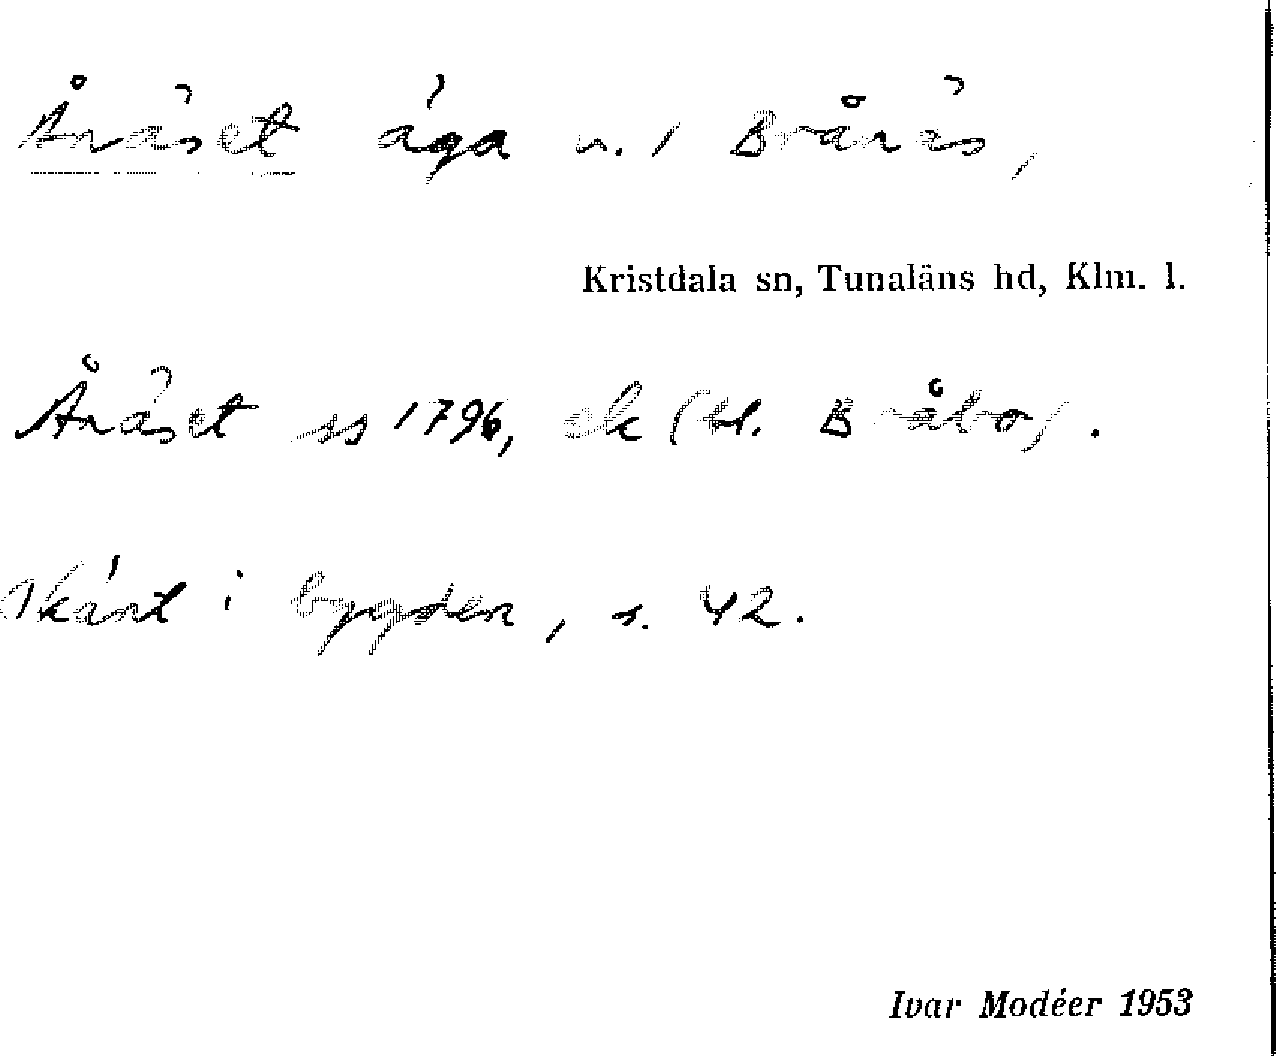 Åräset äga n. i Bråräs,
Kristdala sn, Tunaläns hd, Klm. l.
Åräset ss 1796, ek (bl. Bråbo).
i bygden, s. 42.
Ivar Modéer 1953